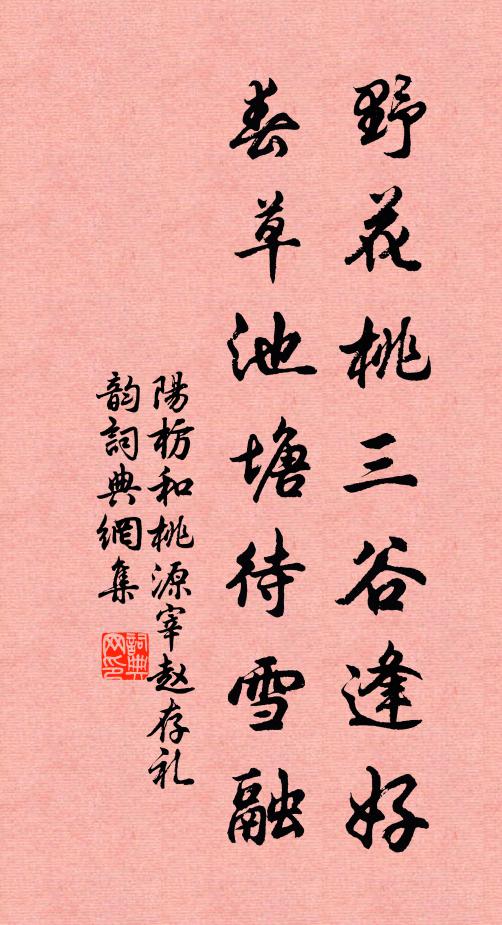 野花桃三谷逢好
春草池塘待雪融
陽枋和桃源宰赵存礼
韵詞典網集
詞典网印